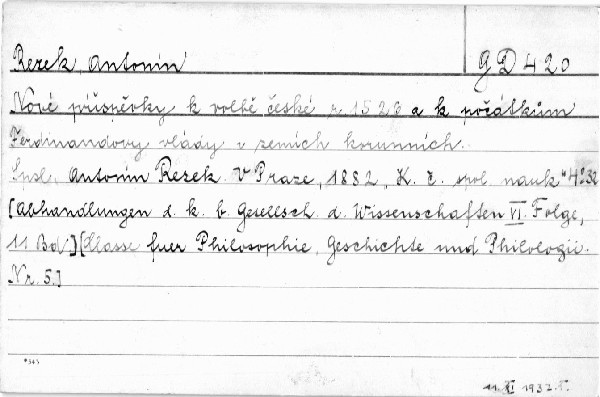 Rezek, Antonín
GD 420
Nové příspěvky k volbě české r. 1526 a k počátkům
Ferdinandovy vlády v zemích korunních.
Sepsl. Antonín Rezek. V Praze, 1882, K. č. spol. nauk 4° 32
[Abhandlungen d. k. b. Gesellsch. d. Wissenschaften VI. Folge,
11 Bd.] [Klasse fuer Philosophie, Geschichte und Philologie.
Nr. 5.]
*343
11. XI 1937.